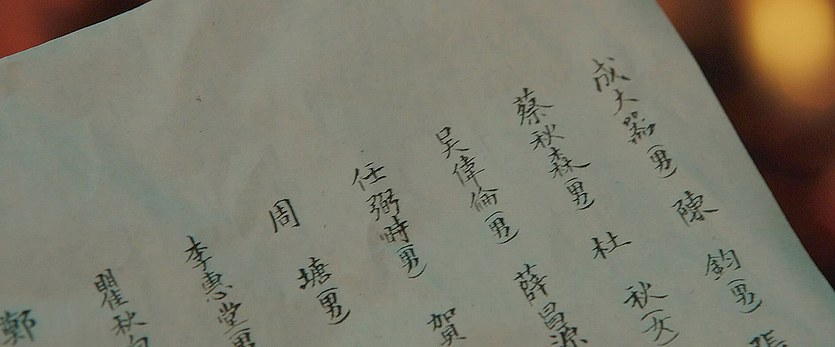 成大器(男) 陳鈞(男)
蔡秋森(男) 杜秋(女)
吳偉倫(男) 薛昌源
任弼時(男) 賀
周塘(男)
李惠堂(男
瞿秋白
鄭